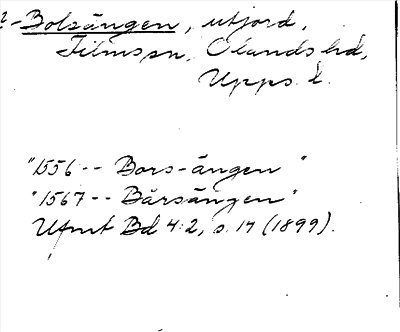 -Bolsängen, utjord,
Films sn, Olands hd,
Upps. l.
"1556 -- Bors-ängen"
"1567 -- Bårsängen"
Ufmt Bd 4:2, s. 14 (1899).